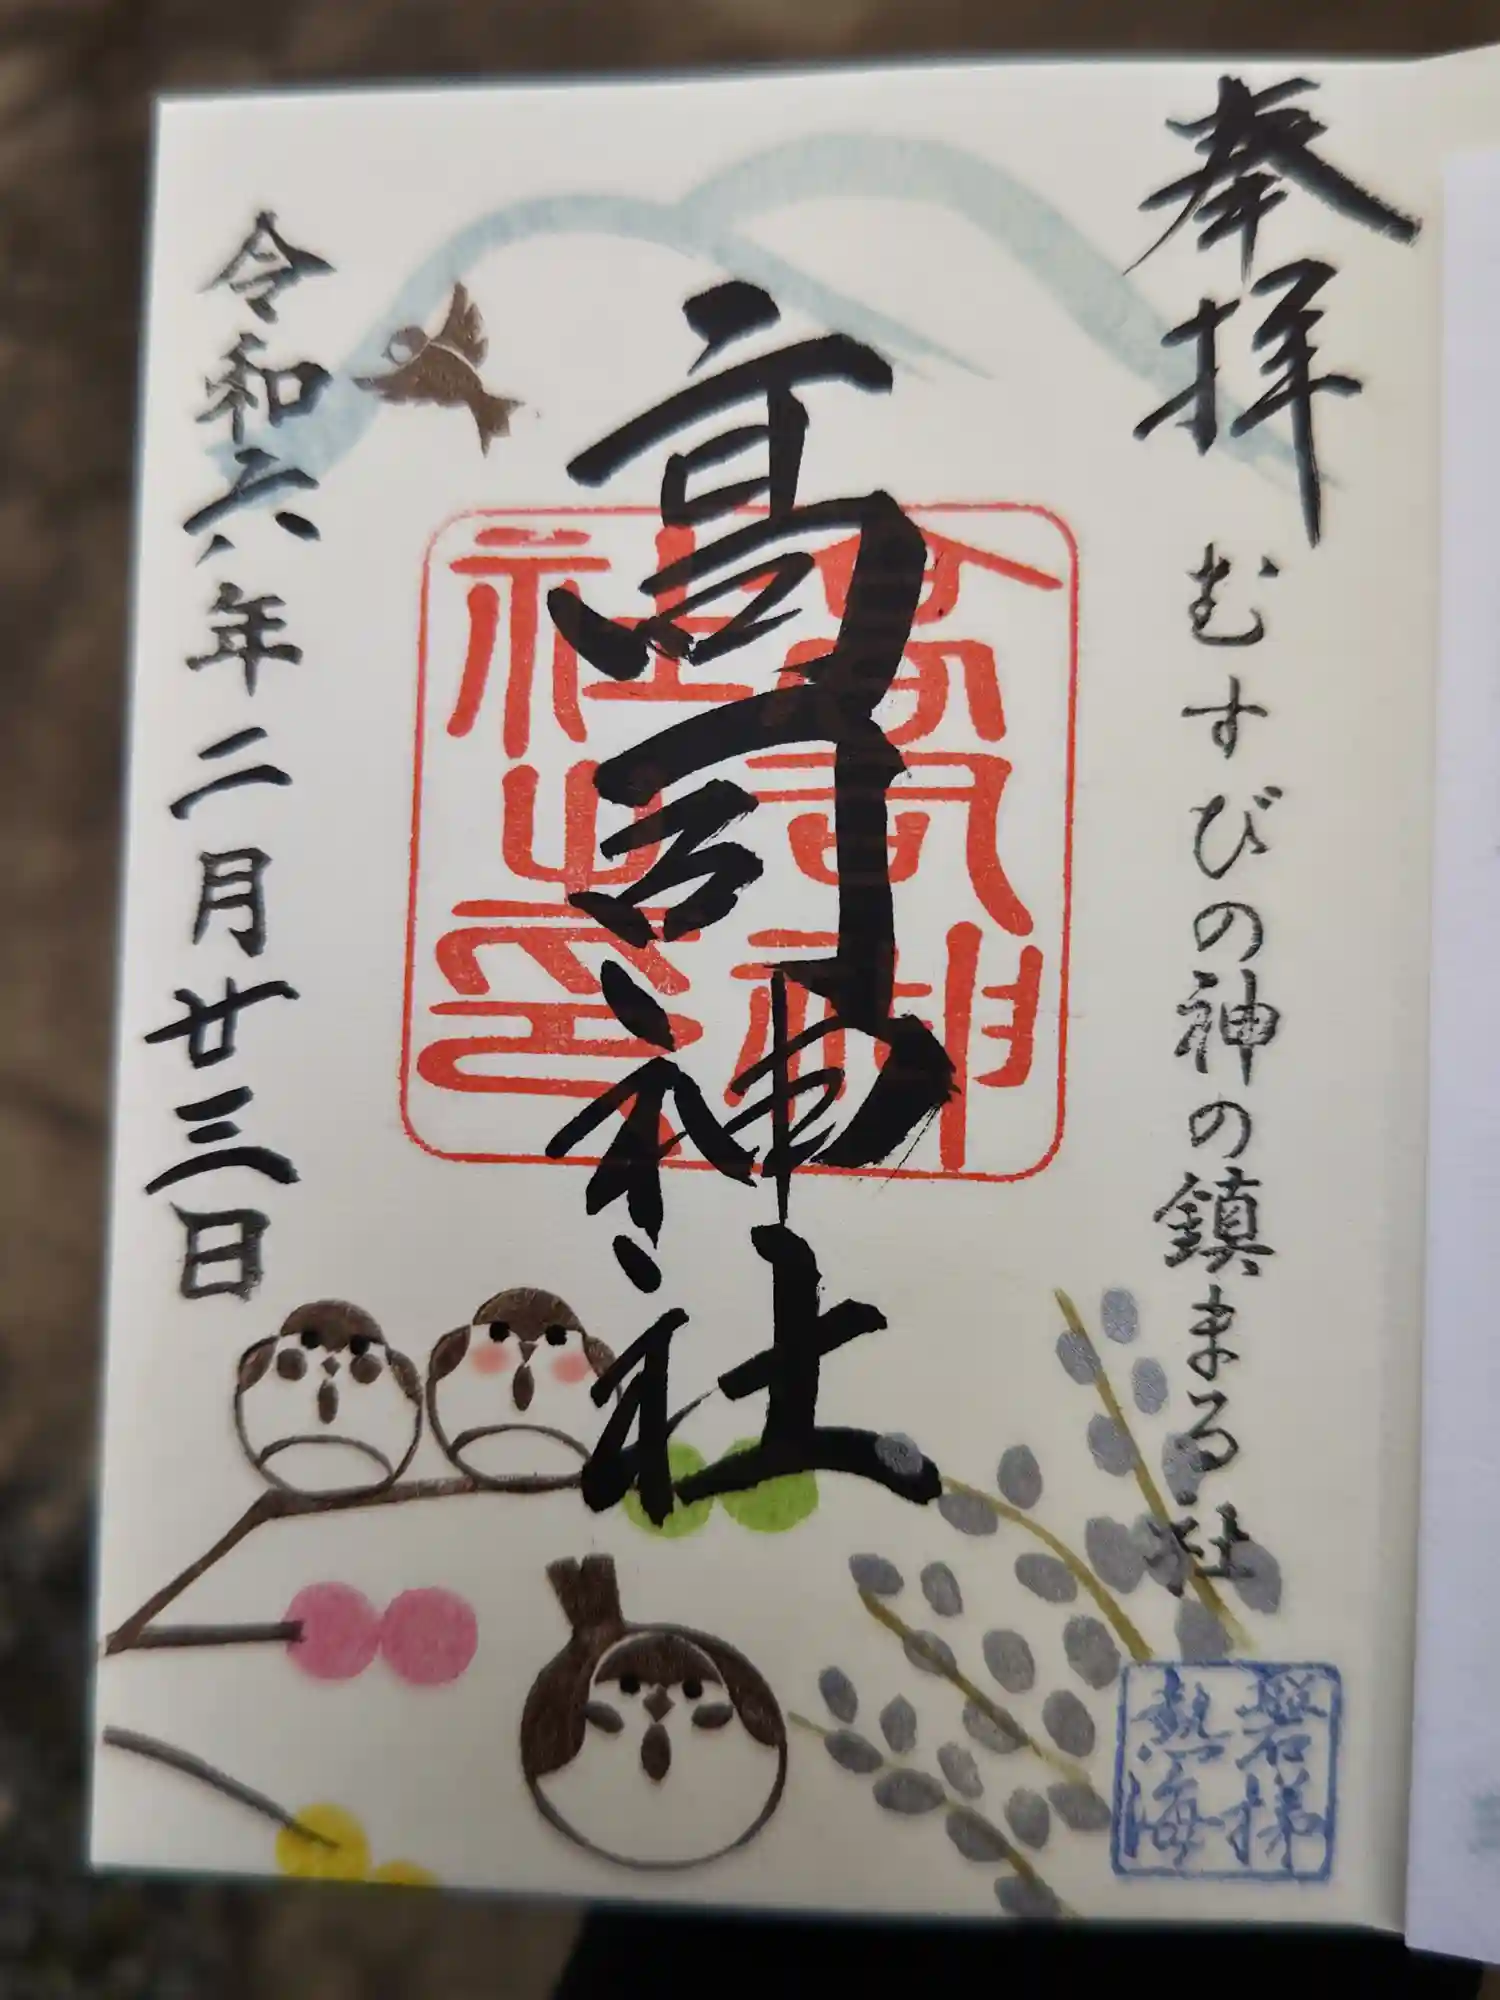 奉拝
むすびの神の鎮まる社
磐梯
熱海
高司神社
高司神
社之印
令和六年二月廿三日